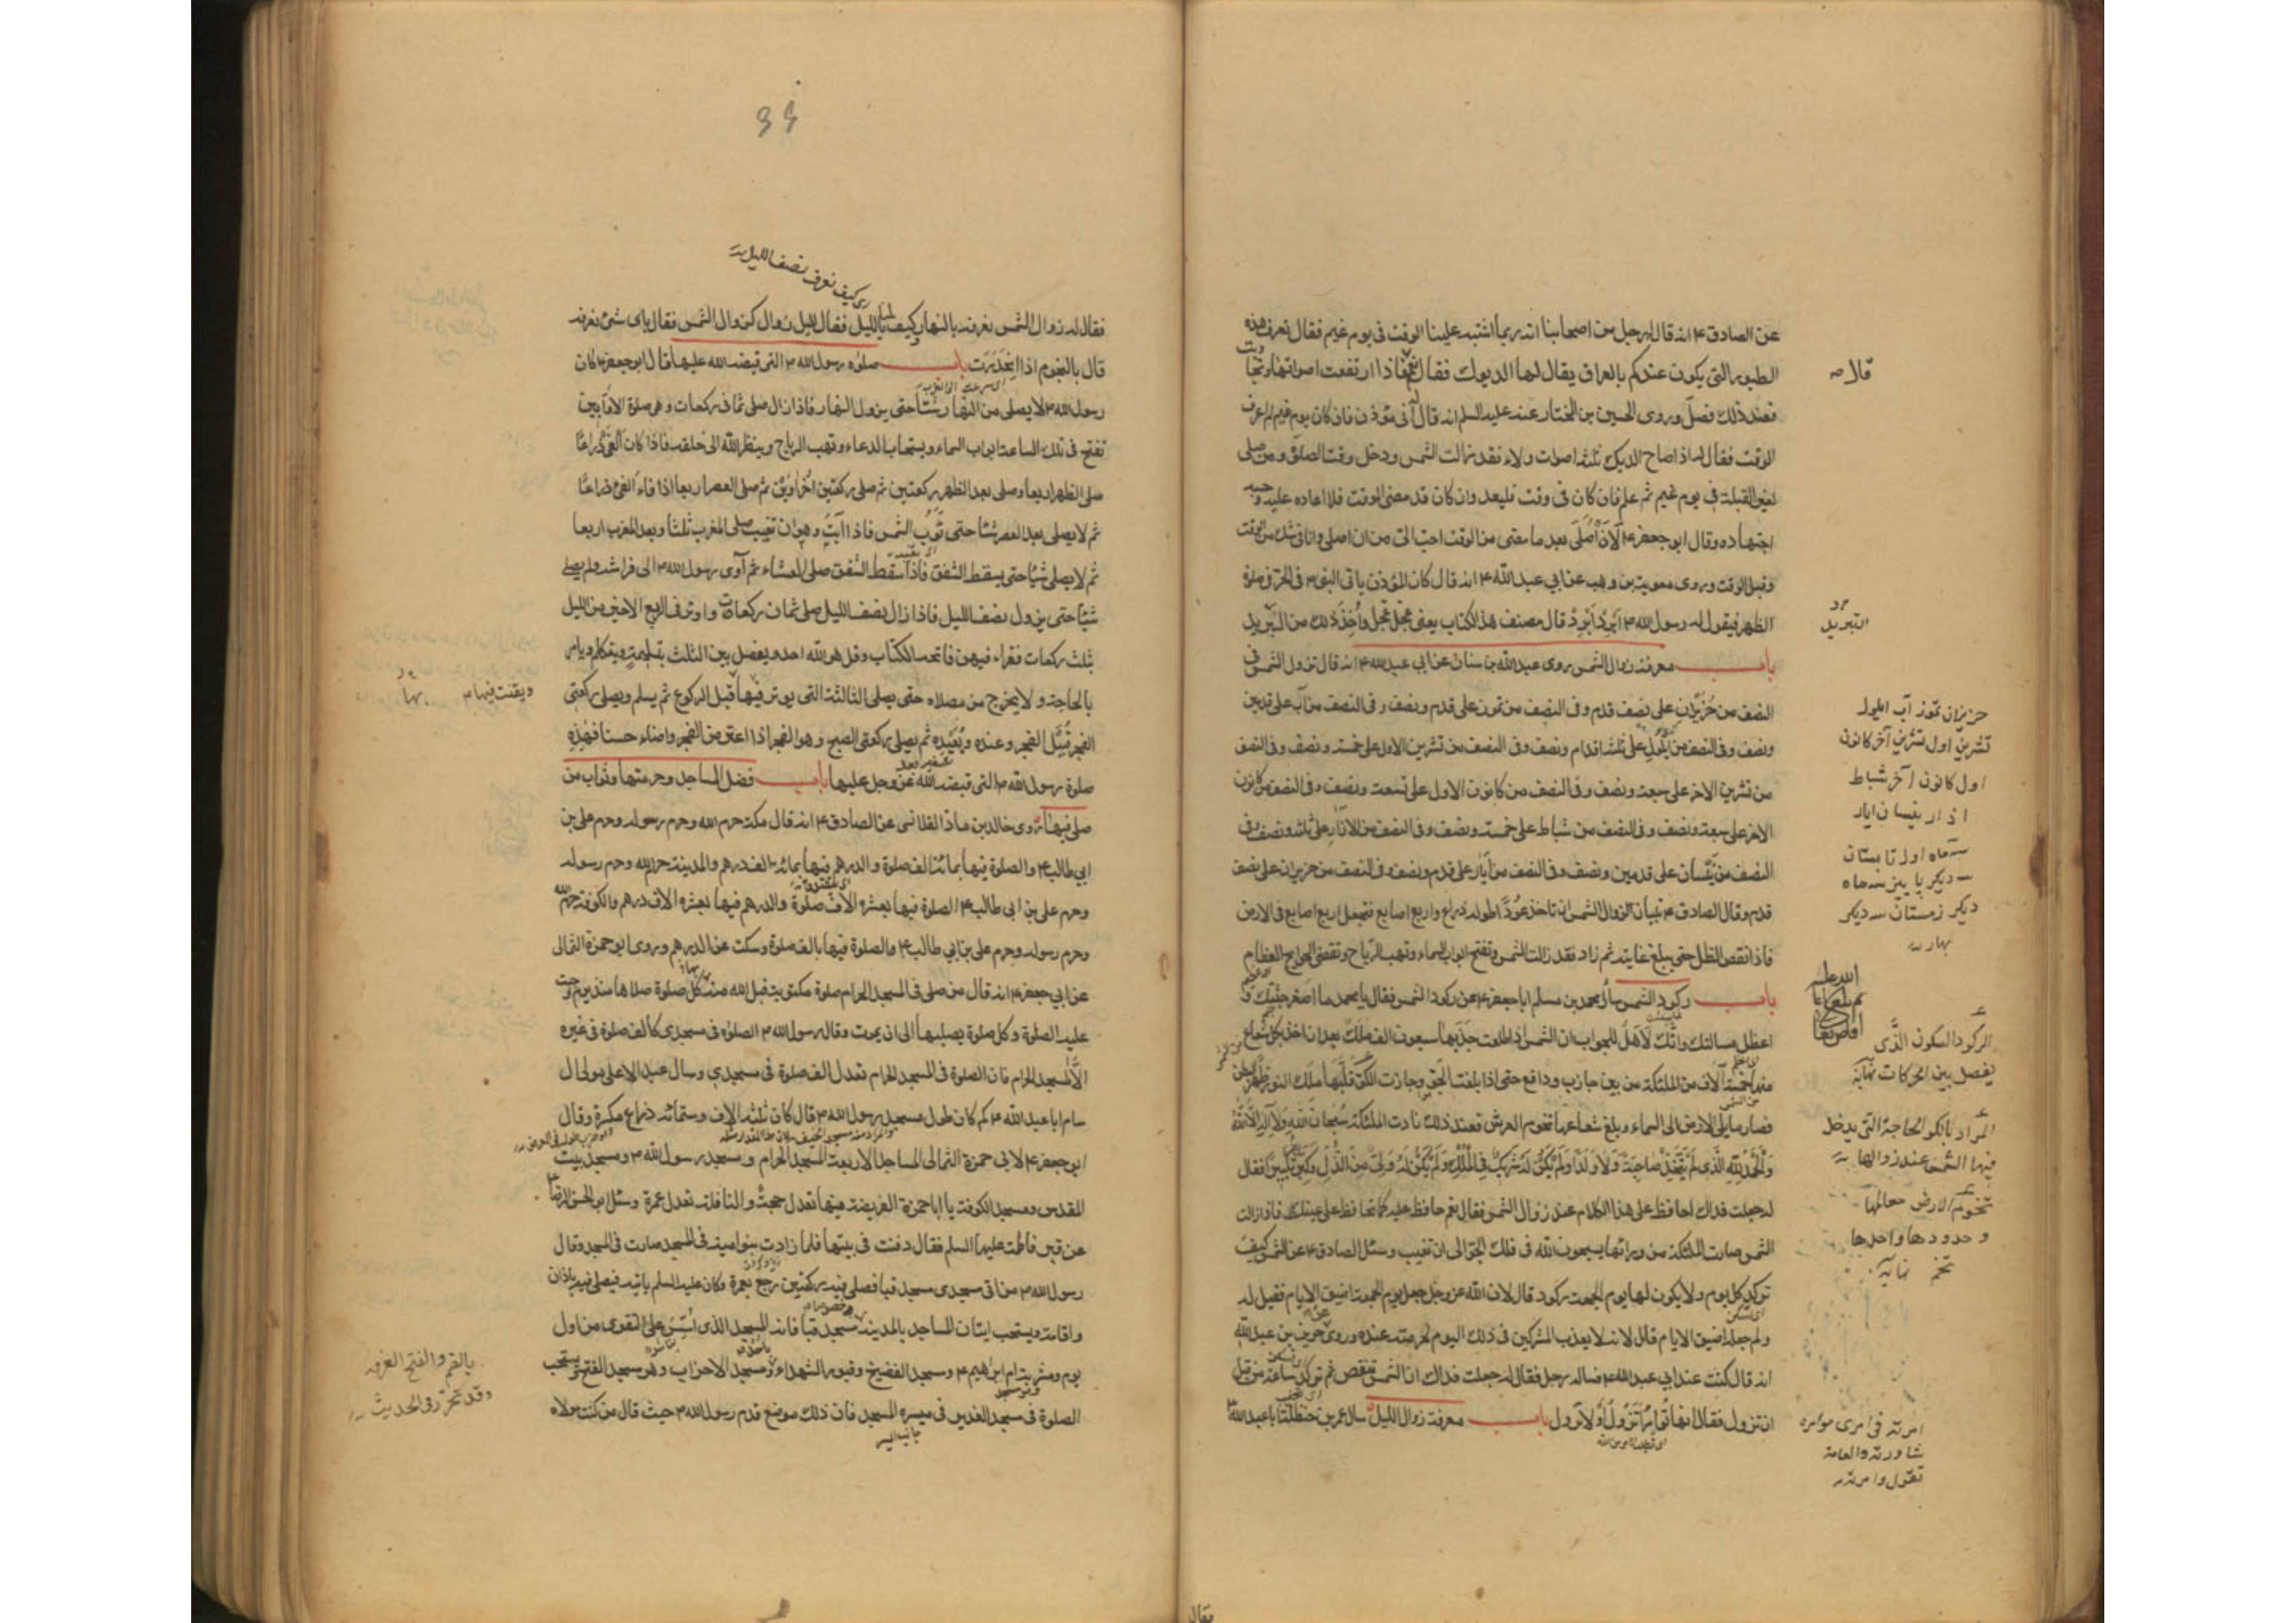 عن الصادق ع انه قال له رجل من اصحابنا انه ربما اشتبه علينا الوقت فى يوم غيم فقال تعرف هذه
الطيور التى يكون عندكم بالعراق يقال لها الديوك فقال نعم فاذا ارتفعت اصواتها وتجا
وبت
قلا صه
فعند ذلك فصلّ وروى الحسين بن المختار عنه عليه السلم انه قال انى مؤذن فان كان يوم غيم لم اعرف
الوقت فقال له اذا صاح الديك ثلثة اصوات ولاء فقد زالت الشمس ودخل وقت الصلوة ومن صلى
لغير القبلة فى يوم غيم ثم علم فان كان فى وقت فليعد وان كان قد مضى الوقت فلا اعاده عليه وحسبه
اجتهاده وقال ابو جعفر ع لَاَنْ اُصَلّىَ بعد ما مضى من الوقت احبّ الىّ من ان اصلى وانا فى شك من الوقت
وقبل الوقت وروى معوية بن وهب عن ابي عبد الله ع انه قال كان المؤذن ياتى النبى ص فى الحرّ فى صلوة
الظهر فيقول له رسول الله ص اَبْرِدْ اَبْرِدْ قال مصنف هذا الكتاب يعنى عجّل عجّل واُخِذَ ذلك من التبريد
التبريد
باب معرفة زوال الشمس روى عبد الله بن سنان عن ابي عبد الله ع انه قال تزول الشمس فى
النصف من حُزَيْران على نصف قدم وفى النصف من تموز على قدم ونصف وفى النصف من آب على قدمين
ونصف وفى النصف من ايلول على ثلثة اقدام ونصف وفى النصف من تشرين الاول على خمسة ونصف وفى النصف
من تشرين الاخر على سبعة ونصف وفى النصف من كانون الاول على تسعة ونصف وفى النصف من كانون
الاخر على سبعة ونصف وفى النصف من شباط على خمسة ونصف وفى النصف من الاذار على ثلثة ونصف وفى
النصف من نَيْسان على قدمين ونصف وفى النصف من اَيّار على قدم ونصف وفى النصف من حزيران على نصف
قدم وقال الصادق ع تبيان زوال الشمس ان تاخذ عودًا طوله ذراع واربع اصابع فتجعل اربع اصابع فى الارض
فاذا نقص الظل حتى يبلغ غايته ثم زاد فقد زالت الشمس وتفتح ابواب السماء وتهب الرياح وتقضى الحوايج العظام
باب ركود الشمس سأل محمد بن مسلم ابا جعفر ع عن ركود الشمس فقال يا محمد ما اصغر جثتك و
اعضل مسالتك وانّك لَاَهلٌ للجواب ان الشمس اذا طلعت جذبها سبعون الف ملك بعد ان اخذ بكل شعاع
منها خمسة آلاف من الملئكة من بين جاذب ودافع حتى اذا بلغت الجوّ وجازت الكوّ قلّبها ملك النور ظهرا لبطن
فصار ما يلى الارض الى السماء وبلغ شعاعها تخوم العرش فعند ذلك نادت الملئكة سُبْحانَ اللهِ وَلا اِلهَ اِلَّا اللهُ
وَالْحَمْدُ لِلّهِ الَّذى لَمْ يَتَّخِذْ صاحِبَةً وَلا وَلَدًا وَلَمْ يَكُنْ لَهُ شَريكٌ فِى الْمُلْكِ وَلَمْ يَكُنْ لَهُ وَلِىٌّ مِنَ الذُّلِّ وَكَبِّرْهُ تَكْبيرًا فقال
له جعلت فداك احافظ على هذا الكلام عند زوال الشمس فقال نعم حافظ عليه كما تحافظ على عينك فاذا زالت
الشمس صارت الملئكة من ورائها يسبحون الله فى فلك الجوّ الى ان تغيب وسئل الصادق ع عن الشمس كيف
تركد كل يوم ولا يكون لها يوم الجمعة ركود قال لان الله عز وجل جعل يوم الجمعة اضيق الايام فقيل له
ولم جعله اضيق الايام قال لانه لا يعذب المشركين فى ذلك اليوم لحرمته عنده وروى حريز بن عبد الله
انه قال كنت عند ابي عبد الله ع فساله رجل فقال له جعلت فداك ان الشمس تنقض ثم تركد ساعة من قبل
ان تزول فقال انها تؤامر اتزول او لا تزول باب معرفة زوال الليل سال عمر بن حنظلة ابا عبد الله ع
حزيران تموز آب ايلول
تشرين اول تشرين آخر كانون
اول كانون آخر شباط
اذار نيسان ايار
سه ماه اول تابستان
سه ديكر پاييز سه ماه
ديكر زمستان سه ديكر
بهار
الركود السكون الذى
يفصل بين الحركات نهاية
المراد بالكو الحاجة التى يدخل
فيها الشمس عند زوالها
تخوم الارض معالمها
وحدودها واحدها
تخم نهاية
امرته فى امرى مؤامره
شاورته والعامة
تقول وامرته
فقال
٦٦
كيف نعرف نصف الليل
فقال له زوال الشمس نعرفه بالنهار كيف لنا بالليل فقال لليل زوال كزوال الشمس فقال باى شئ نعرفه
قال بالنجوم اذا انحدرت باب صلوة رسول الله ص التى قبضه الله عليها قال ابو جعفر ع كان
رسول الله ص لا يصلى من النهار شيئا حتى يزول النهار فاذا زال صلى ثمانى ركعات وهى صلوة الاوّابين
تفتح فى تلك الساعة ابواب السماء ويستجاب الدعاء وتهب الرياح وينظر الله الى خلقه فاذا كان الفئ ذراعًا
صلى الظهر اربعا وصلى بعد الظهر ركعتين ثم صلى ركعتين اُخْراوَيْن ثم صلى العصر اربعا اذا فاء الفئ ذراعًا
ثم لا يصلى بعد العصر شيئا حتى تؤب الشمس فاذا آبت وهو ان تغيب صلى المغرب ثلثا وبعد المغرب اربعا
ثم لا يصلى شيئا حتى يسقط الشفق فاذا سقط الشفق صلى العشاء ثم آوى رسول الله ص الى فراشه ولم يصل
شيئا حتى يزول نصف الليل فاذا زال نصف الليل صلى ثمان ركعات واوتر فى الربع الاخير من الليل
بثلث ركعات فقراء فيهن فاتحة الكتاب وقل هو الله احد ويفصل بين الثلث بتسليمة ويتكلم ويامر
بالحاجة ولا يخرج من مصلاه حتى يصلى الثالثة التى يوتر فيها قبل الركوع ثم يسلم ويصلى ركعتى
ويقنت فيها
الفجر قُبَيْل الفجر وعنده وبُعَيْده ثم يصلى ركعتى الصبح وهو الفجر اذا اعترض الفجر واضاء حسنا فهذه
صلوة رسول الله ص التى قبضه الله عز وجل عليها باب فضل المساجد وحرمتها وثواب من
صلى فيها روى خالد بن ماد القلانسى عن الصادق ع انه قال مكة حرم الله وحرم رسوله وحرم على بن
ابي طالب ع والصلوة فيها بمائة الف صلوة والدرهم فيها بمائة الف درهم والمدينة حرم الله وحرم رسوله
وحرم على بن ابى طالب ع الصلوة فيها بعشرة الاف صلوة والدرهم فيها بعشرة الاف درهم والكوفة حرم الله
وحرم رسوله وحرم على بن ابي طالب ع والصلوة فيها بالف صلوة وسكت عن الدرهم وروى ابو حمزة الثمالى
عن ابي جعفر ع انه قال من صلى فى المسجد الحرام صلوة مكتوبة قبل الله منه كل صلوة صلاها منذ يوم وجبت
عليه الصلوة وكل صلوة يصليها الى ان يموت وقال رسول الله ص الصلوة فى مسجدى كالف صلوة فى غيره
الّا المسجد الحرام فان الصلوة فى المسجد الحرام تعدل الف صلوة فى مسجدى وسال عبد الاعلى مولى ال
سام ابا عبد الله ع كم كان طول مسجد رسول الله ص قال كان ثلثة الاف وستمائة ذراع مكسرة وقال
ابو جعفر ع لابى حمزة الثمالى المساجد الاربعة المسجد الحرام ومسجد رسول الله ص ومسجد بيت
المقدس ومسجد الكوفة يا ابا حمزة الفريضة فيها تعدل حجة والنافلة تعدل عمرة وسئل ابو الحسن الرضا ع
عن قبر فاطمة عليها السلم فقال دفنت فى بيتها فلما زادت بنو امية فى المسجد صارت فى المسجد وقال
رسول الله ص من اتى مسجدى مسجد قبا فصلى فيه ركعتين رجع بعمرة وكان عليه السلم ياتيه فيصلى فيه باذان
واقامة ويستحب اتيان المساجد بالمدينة مسجد قبا فانه المسجد الذى اُسّس على التقوى من اول
يوم ومشربة ام ابراهيم ع ومسجد الفضيخ وقبور الشهداء ومسجد الاحزاب وهو مسجد الفتح ويستحب
الصلوة فى مسجد الغدير فى ميسرة المسجد فان ذلك موضع قدم رسول الله ص حيث قال من كنت مولاه
جانب ايسر
بالضم والفتح الغرفه
وقد تكرر فى الحديث